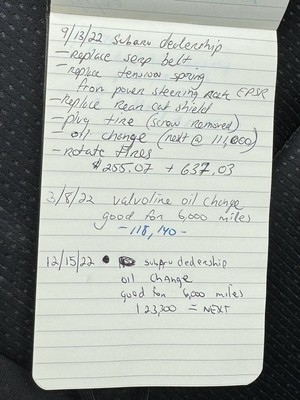 9/13/22 Subaru dealership
- Replace serp belt
- replace tension spring
from power steering rack EPSR
- Replace Rear cat shield
- plug tire (screw removed)
- oil change (next @ 111,000)
- rotate tires
$255.07 + 637.03
3/8/22 Valvoline oil change
good for 6,000 miles
- 118,140 -
12/15/22 • Subaru dealership
oil change
good for 6,000 miles
123,300 = NEXT